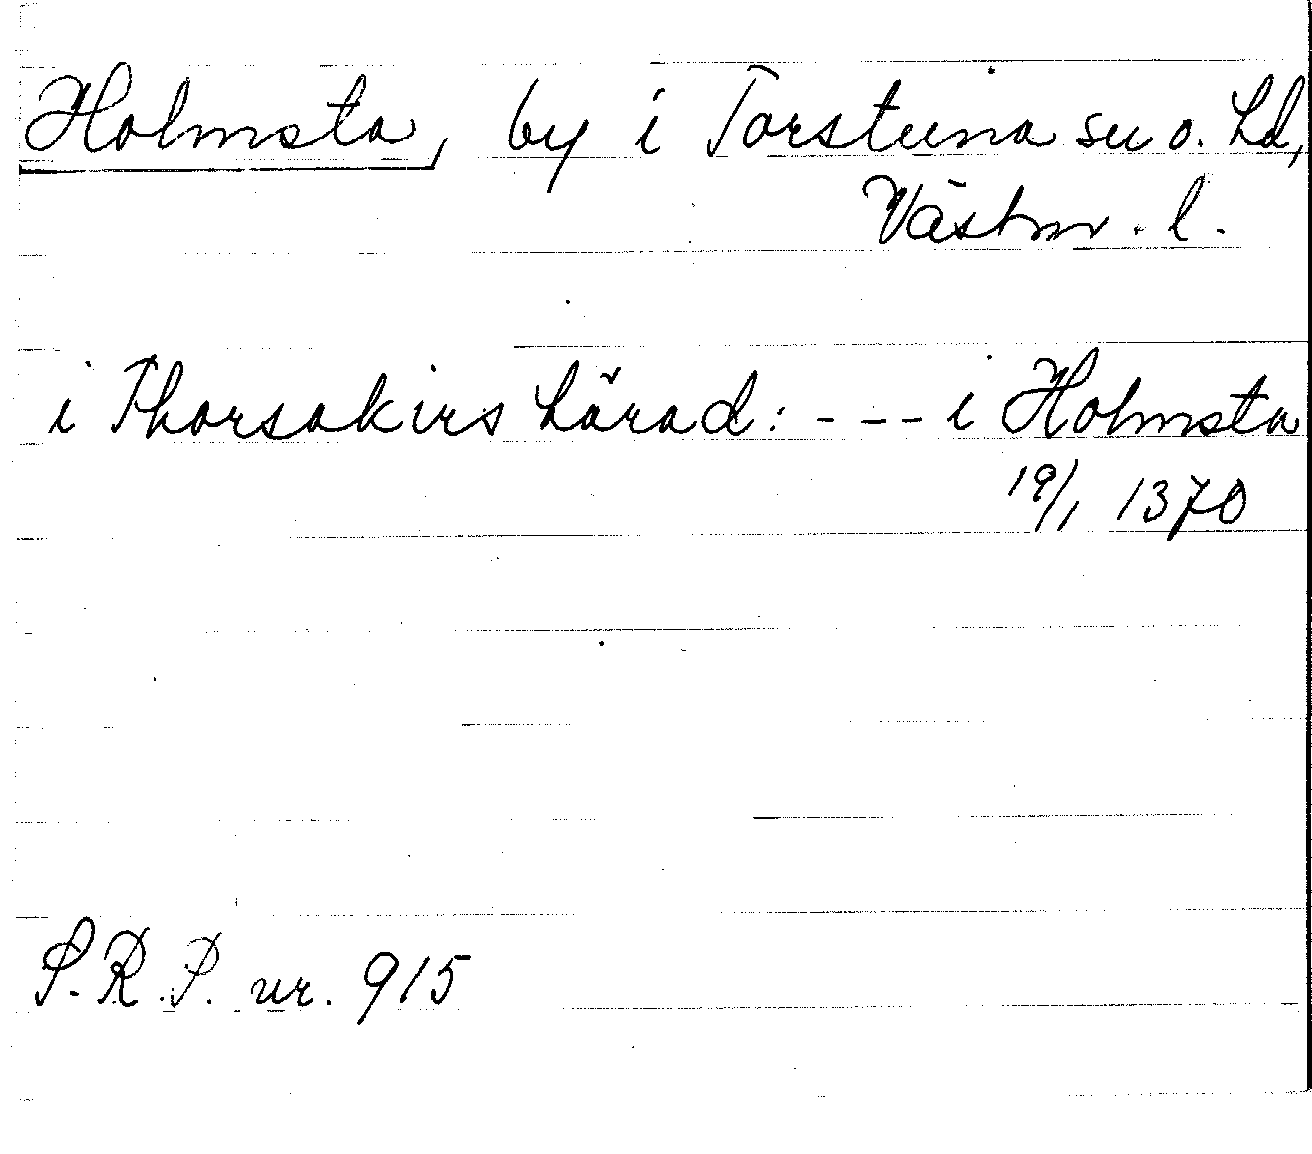 Holmsta, by i Torstuna sn o. hd,
Västm. l.
i Thorsakirs härad: - - - i Holmsta
19/1 1370
S.R.P. nr. 915